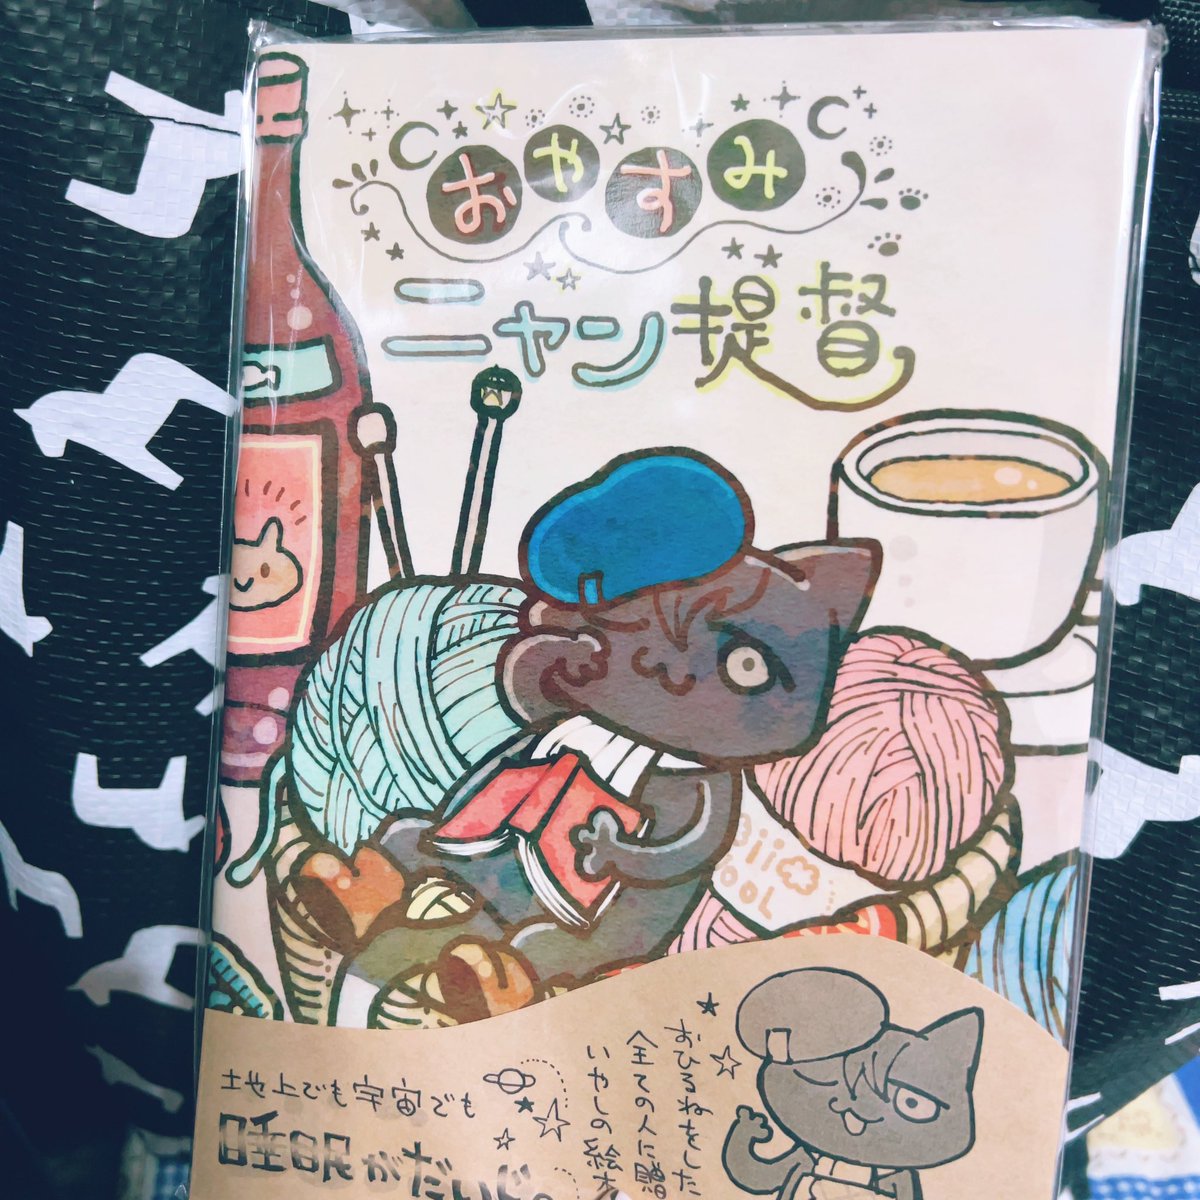 おやすみ
ニャン提督
WOOL
地上でも宇宙でも
睡眠がだいじ。
おひるねをした
全ての人に贈
いやしの絵本